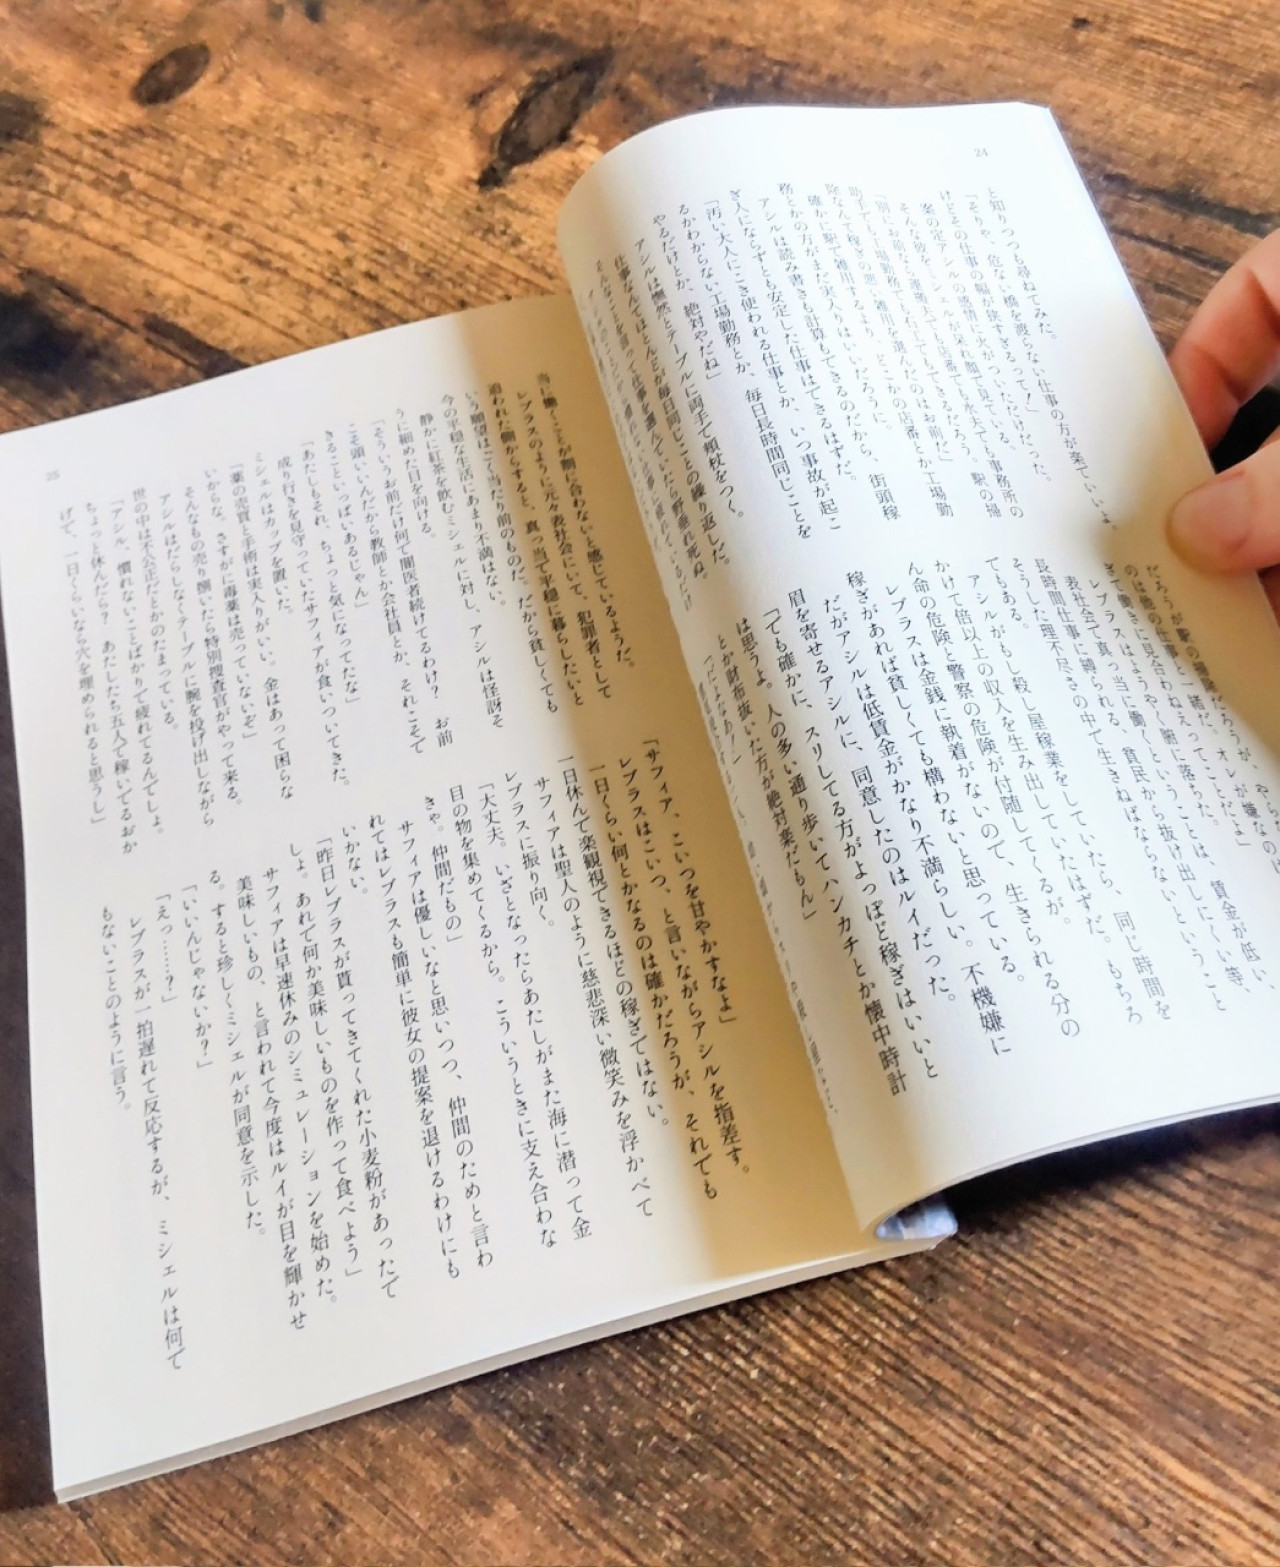 24
と知りつつも尋ねてみた。
「そりゃ、危ない橋を渡らない仕事の方が楽でいいよ、
けどその仕事の幅が狭すぎるって！」
案の定アシルの感情に火がついただけだった。
そんな彼をミシェルが呆れ顔で見ている。
「別にお前なら運搬夫でも店番でも水夫でも事務所の
助手でも工場勤務でも右に上でもできるだろう。駅の掃
除なんて稼ぎの悪い雑用を選んだのはお前だ」
確かに駅で雑用するより、どこかの店番とか工場勤
務とかの方がまだ実入りはいいだろうに。
アシルは読み書きも計算もできるのだから、街頭稼
ぎ人にならずとも安定した仕事はできるはずだ。
「汚い大人にこき使われる仕事とか、いつ事故が起こ
るかわからない工場勤務とか、毎日長時間同じことを
やるだけとか、絶対やだね」
アシルは憮然とテーブルに両手で頬杖をつく。
仕事なんてほとんどが毎日同じことの繰り返しだ。
そんなことを言って仕事を選んでいたら野垂れ死ぬ。
だろうが駅の掃除だろうが、やら
のは他の仕事と一緒だ。オレが嫌なの
きて働きに見合わねえってことだよ」
レブラスはようやく腑に落ちた。賃金が低い、
表社会で真っ当に働くということは、
長時間仕事に縛られる、貧民から抜け出しにくい等、
そうした理不尽さの中で生きねばならないということ
でもある。
アシルがもし殺し屋稼業をしていたら、同じ時間を
かけて倍以上の収入を生み出していたはずだ。もちろ
ん命の危険と警察の危険が付随してくるが。
レブラスは金銭に執着がないので、生きられる分の
稼ぎがあれば貧しくても構わないと思っている。
だがアシルは低賃金がかなり不満らしい。不機嫌に
眉を寄せるアシルに、同意したのはルイだった。
「でも確かに、スリしてる方がよっぽど稼ぎはいいと
は思うよ。人の多い通り歩いてハンカチとか懐中時計
とか財布抜いた方が絶対楽だもん」
「だよなあ！」
25
当に働くことが割に合わないと感じているようだ。
レブラスのように元々表社会にいて、犯罪者として
追われた側からすると、真っ当で平穏に暮らしたいと
いう願望はごく当たり前のものだ。だから貧しくても
今の平穏な生活にあまり不満はない。
静かに紅茶を飲むミシェルに対し、アシルは怪訝そ
うに細めた目を向ける。
「そういうお前だけ何で闇医者続けてるわけ？　お前
こそ頭いいんだから教師とか会社員とか、それこそで
きることいっぱいあるじゃん」
「あたしもそれ、ちょっと気になってたな」
成り行きを見守っていたサフィアが食いついてきた。
ミシェルはカップを置いた。
「薬の売買と手術は実入りがいい。金はあって困らな
いからな。さすがに毒薬は売っていないぞ」
そんなもの売り捌いたら特別捜査官がやって来る。
アシルはだらしなくテーブルに腕を投げ出しながら
世の中は不公正だとかのたまっている。
「アシル、慣れないことばかりで疲れてるんでしょ。
ちょっと休んだら？　あたしたち五人で稼いでるおか
げで、一日くらいなら穴を埋められると思うし」
「サフィア、こいつを甘やかすなよ」
レブラスはこいつ、と言いながらアシルを指差す。
一日くらい何とかなるのは確かだろうが、それでも
一日休んで楽観視できるほどの稼ぎではない。
サフィアは聖人のように慈悲深い微笑みを浮かべて
レブラスに振り向く。
「大丈夫。いざとなったらあたしがまた海に潜って金
目の物を集めてくるから。こういうときに支え合わな
きゃ。仲間だもの」
サフィアは優しいなと思いつつ、仲間のためと言わ
れてはレブラスも簡単に彼女の提案を退けるわけにも
いかない。
「昨日レブラスが貰ってきてくれた小麦粉があったで
しょ。あれで何か美味しいものを作って食べよう」
サフィアは早速休みのシミュレーションを始めた。
美味しいもの、と言われて今度はルイが目を輝かせ
る。すると珍しくミシェルが同意を示した。
「いいんじゃないか？」
「えっ……？」
レブラスが一拍遅れて反応するが、ミシェルは何で
もないことのように言う。